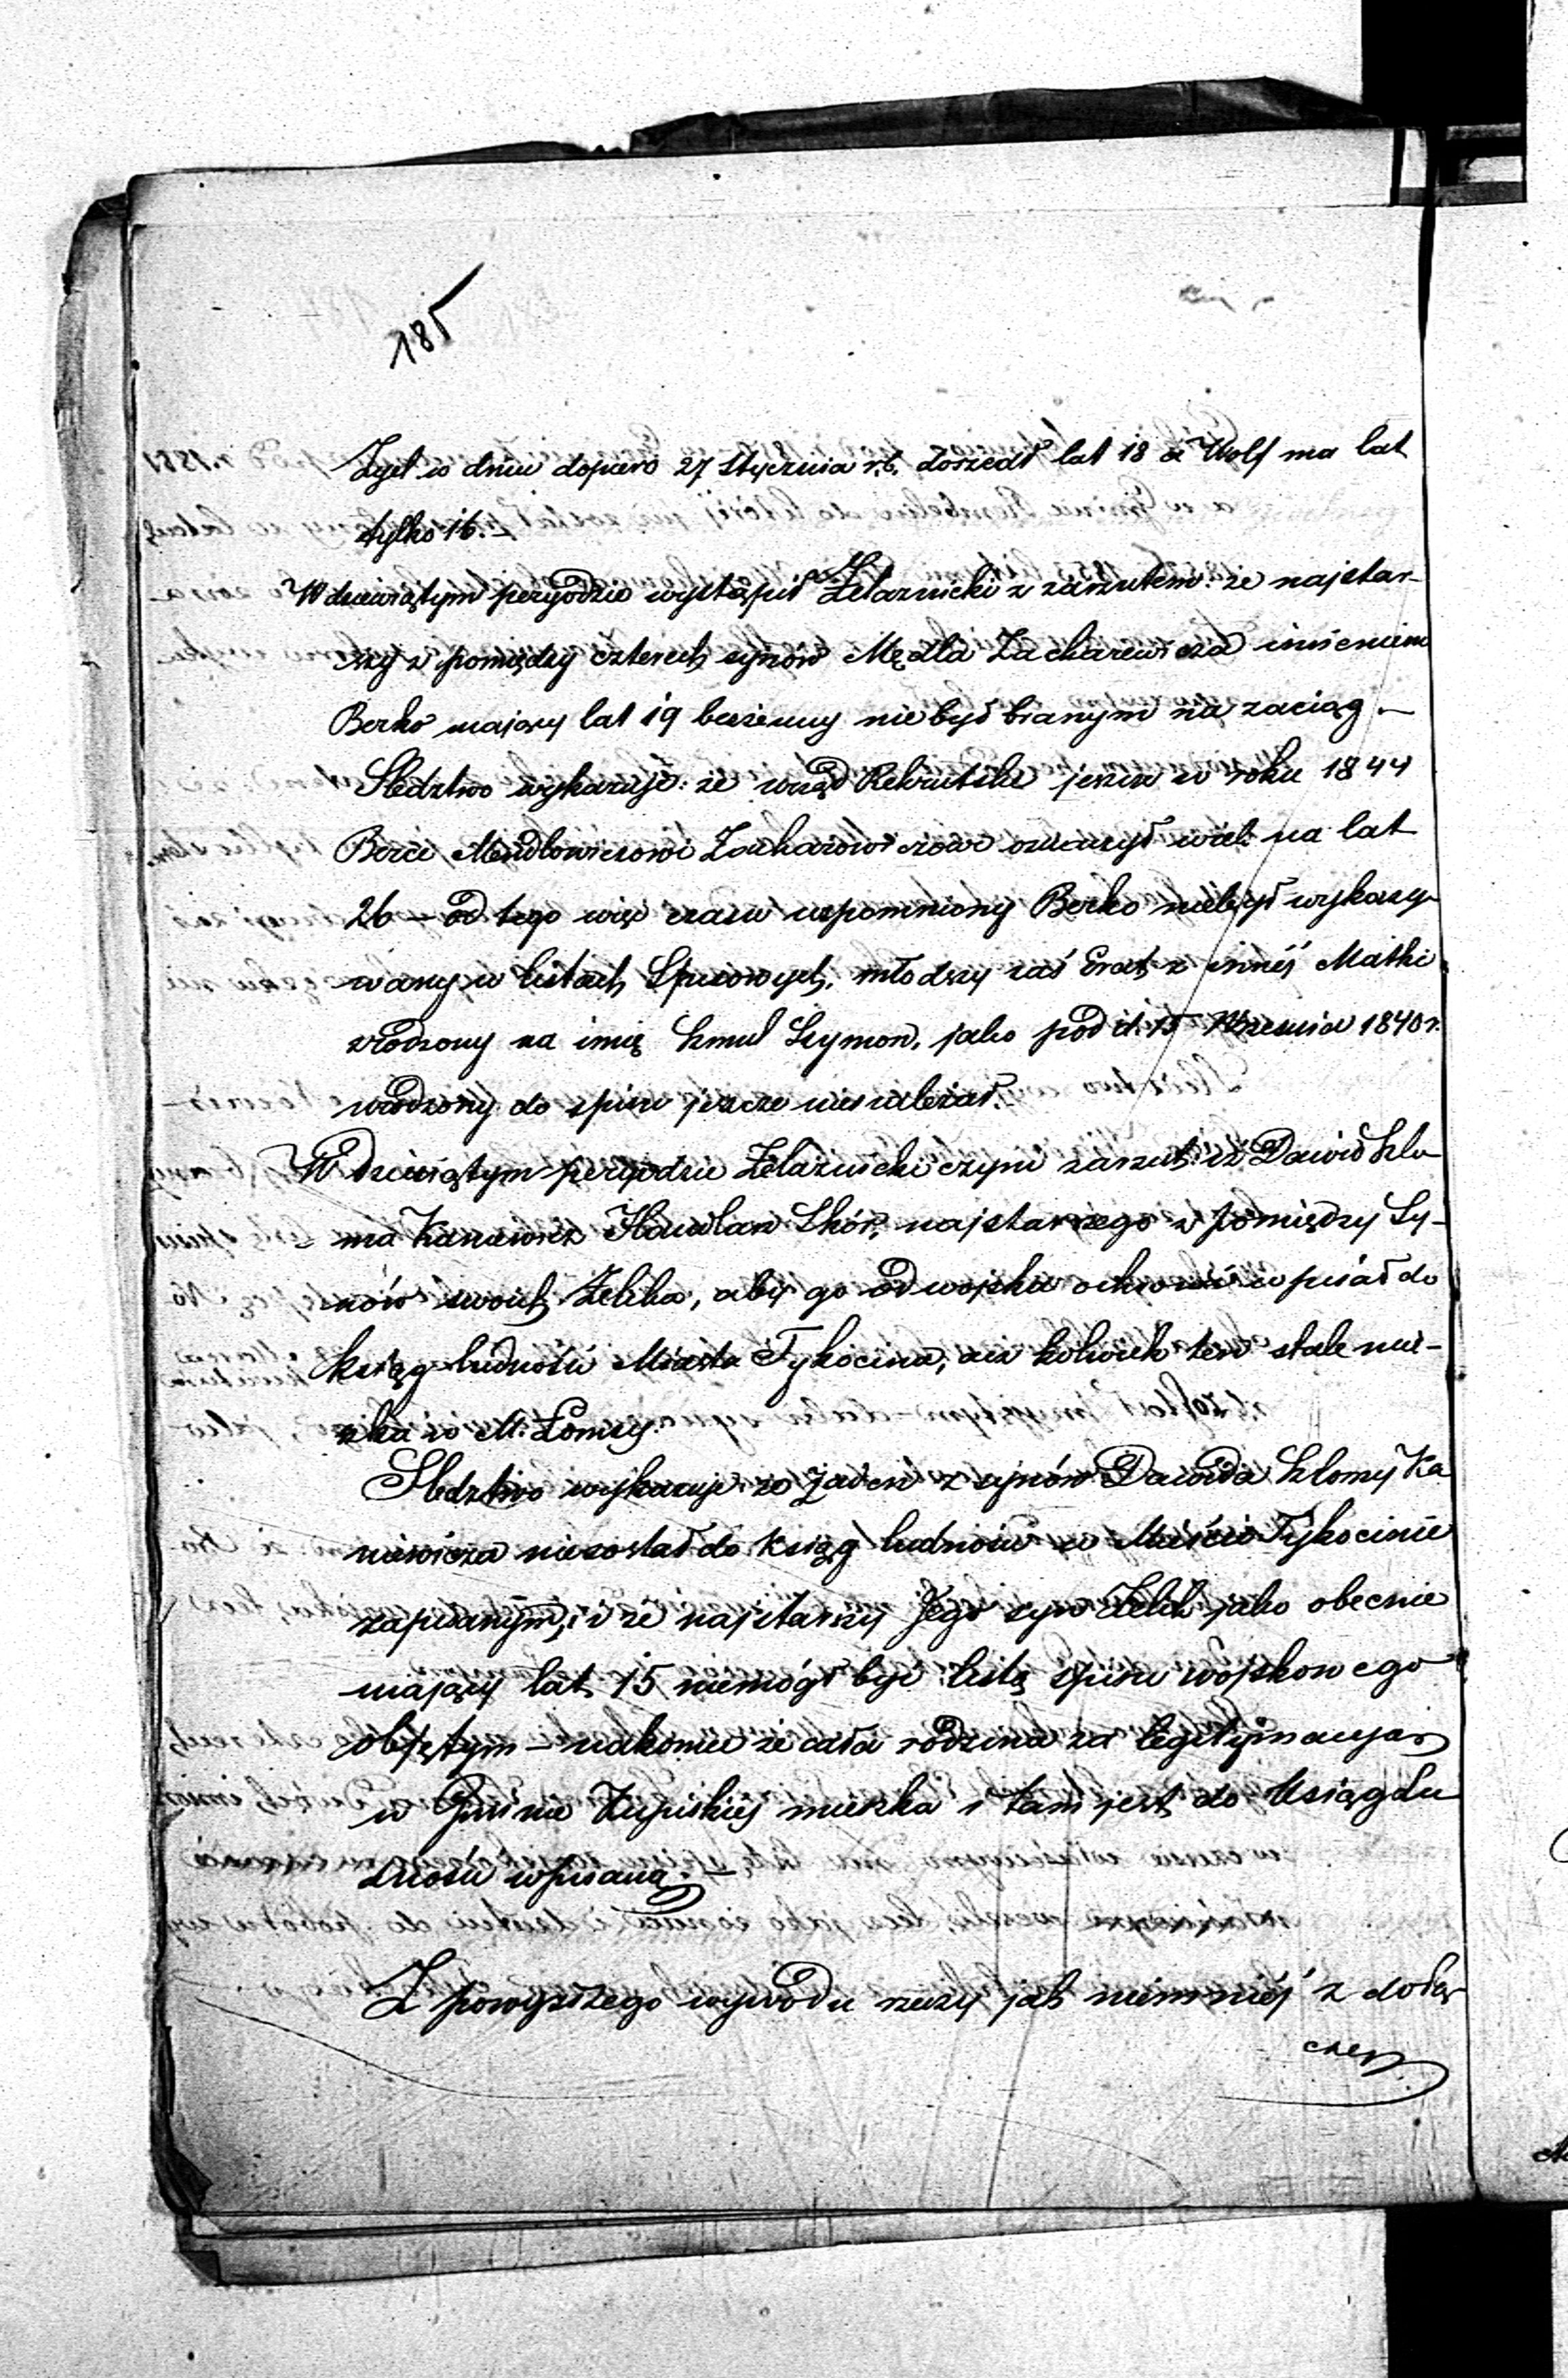 185
Zyel w dniu dopiero 27 Stycznia r.b. doszedł lat 18 a Wolf ma lat
tylko 16.
W dziewiątym peryodzie wystąpił Żelaznicki z zarzutem: że najstar-
szy z pomiędzy czterech synów Mędla Zacharewicza imieniem
Berko mający lat 19 bezżenny nie był branym na zaciąg.—
Śledztwo wykazuje: że urząd Rekrutski jeszcze w roku 1844
Berce Mendlowiczowi Zacharowiczowi oznaczył wiek na lat
26 — od tego więc czasu wspomniony Berko niebył wykazy-
wany w listach Spisowych, młodszy zaś brat z innéj Matki
zrodzony na imię Szmul Szymon, jako pod d. 15 Września 1840 r.
urodzony do spisu jeszcze nienależał.
W dziewiątym peryodzie Żelaznicki czyni zarzut: iż Dawid Szlo-
ma Kanawicz Handlarz Skór, najstarszego z pomiędzy Sy-
nów swoich Zelika, aby go od wojska ochronić wpisał do
ksiąg ludności Miasta Tykocina, acz kolwiek ten stale mie-
szka w M. Łomży.
Śledztwo wykazuje że żaden z synów Dawida Szlomy Ka
nawicza niezostał do Ksiąg ludności w Mieście Tykocinie
zapisanym, i że najstarszy Jego syn Zelik jako obecnie
mający lat 15 niemógł być listą spisu wojskowego
objętym — nakoniec że cała rodzina za legitymacyą
w Gminie Kupiskiej mieszka i tam jest do Ksiąg Lu
dności wpisaną.
Z powyższego wywodu rzeczy jak niemniéj z dołą-
czen